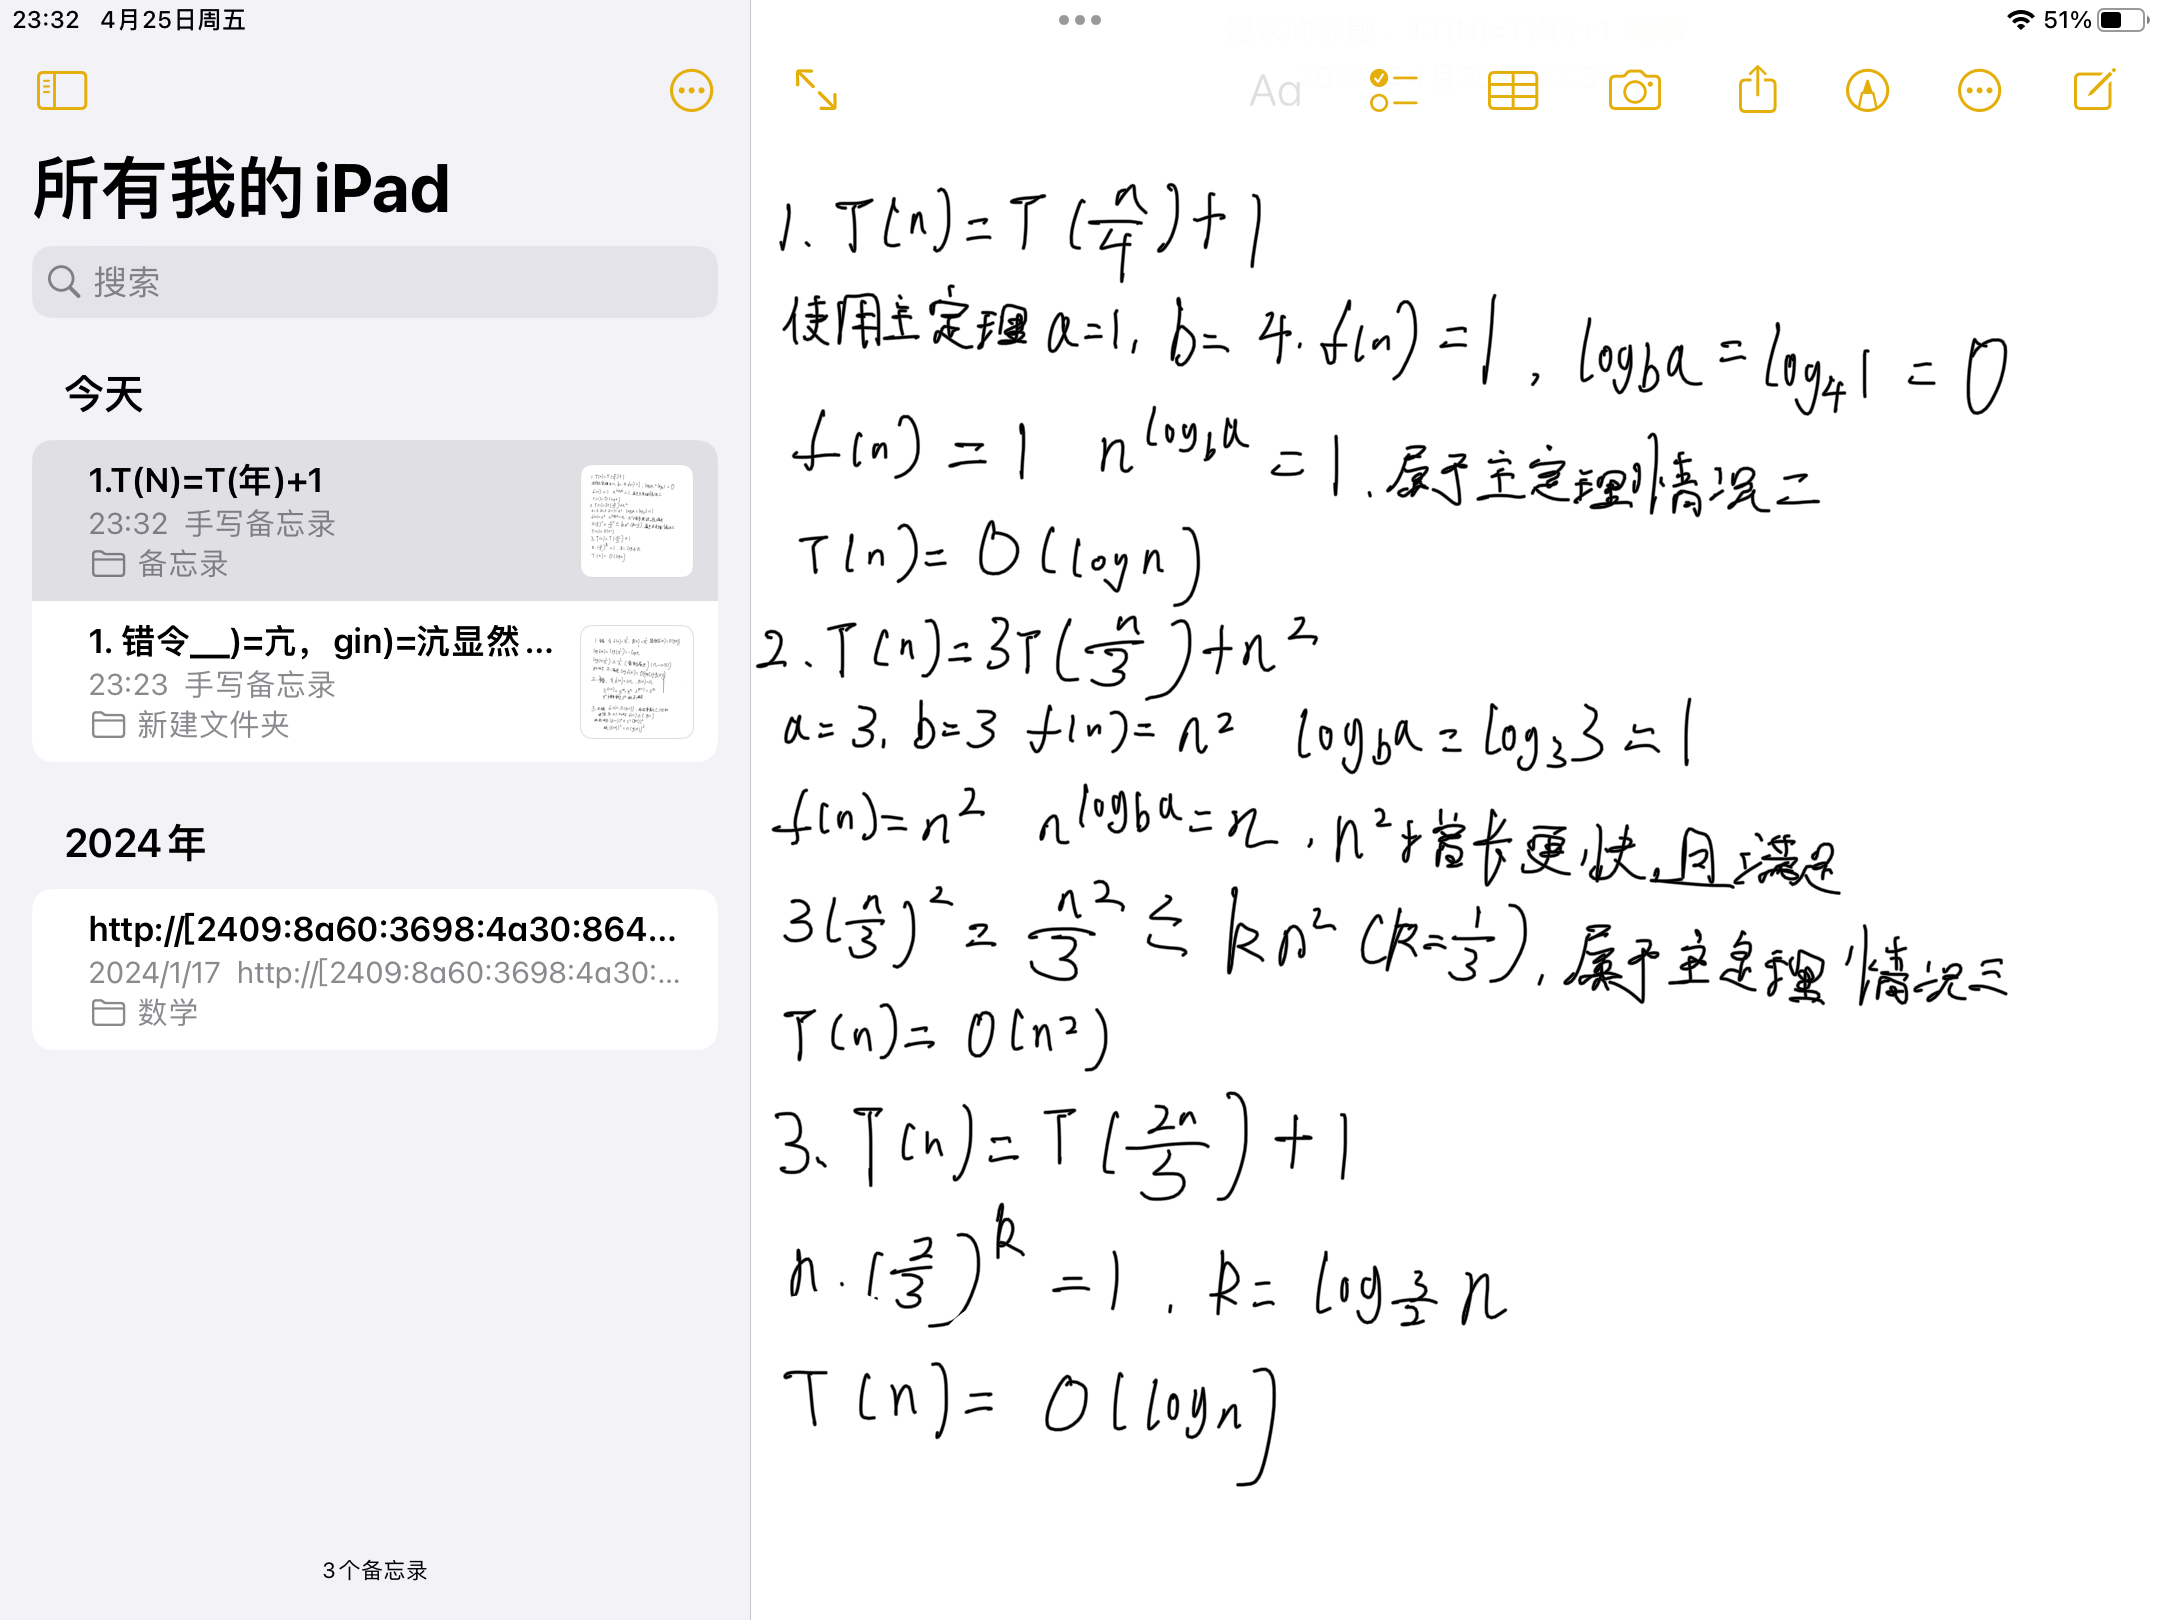 23:32 4月25日周五
51%
所有我的 iPad
搜索
今天
1.T(N)=T(年)+1
23:32 手写备忘录
备忘录
1. 错令__)=亢，gin)=沆显然...
23:23 手写备忘录
新建文件夹
2024年
http://[2409:8a60:3698:4a30:864...
2024/1/17 http://[2409:8a60:3698:4a30:...
数学
3个备忘录
Aa
1. T(n)=T(n/4)+1
使用主定理 a=1, b=4. f(n)=1, log_b a=log_4 1=0
f(n)=1 n^{log_b a}=1. 属于主定理情况二
T(n)=O(log n)
2. T(n)=3T(n/3)+n²
a=3, b=3 f(n)=n² log_b a=log_3 3=1
f(n)=n² n^{log_b a}=n, n²增长更快, 且满足
3(n/3)²=n²/3≤kn² (k=1/3), 属于主定理情况三
T(n)=O(n²)
3. T(n)=T(2n/3)+1
n·(2/3)^k=1, k=log_{3/2} n
T(n)=O(log n)